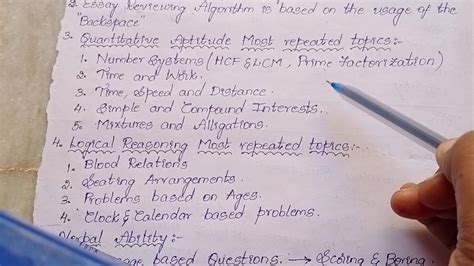 2. Essay Reviewing Algorithm is based on the usage of the
"Backspace"
3. Quantitative Aptitude Most repeated topics:-
1. Number Systems (HCF & LCM, Prime Factorization)
2. Time and Work.
3. Time, Speed and Distance.
4. Simple and Compound Interests.
5. Mixtures and Alligations.
4. Logical Reasoning Most repeated topics:-
1. Blood Relations
2. Seating Arrangements.
3. Problems based on Ages.
4. Clock & Calendar based problems.
Verbal Ability:-
based Questions. → Scoring & Boring.